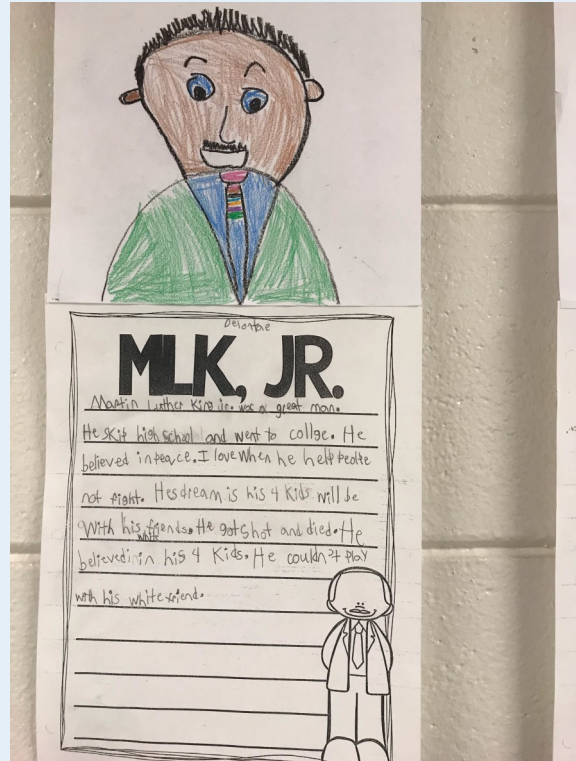 Delontae
MLK, JR.
Martin Luther King jr. was a great man.
He skip high school and went to collge. He
believed in peace. I love when he help peolte
not fight. Hes dream is his 4 kids will be
With his white fiends. He got shot and died. He
believed in in his 4 Kids. He couldn't play
with his white friend.